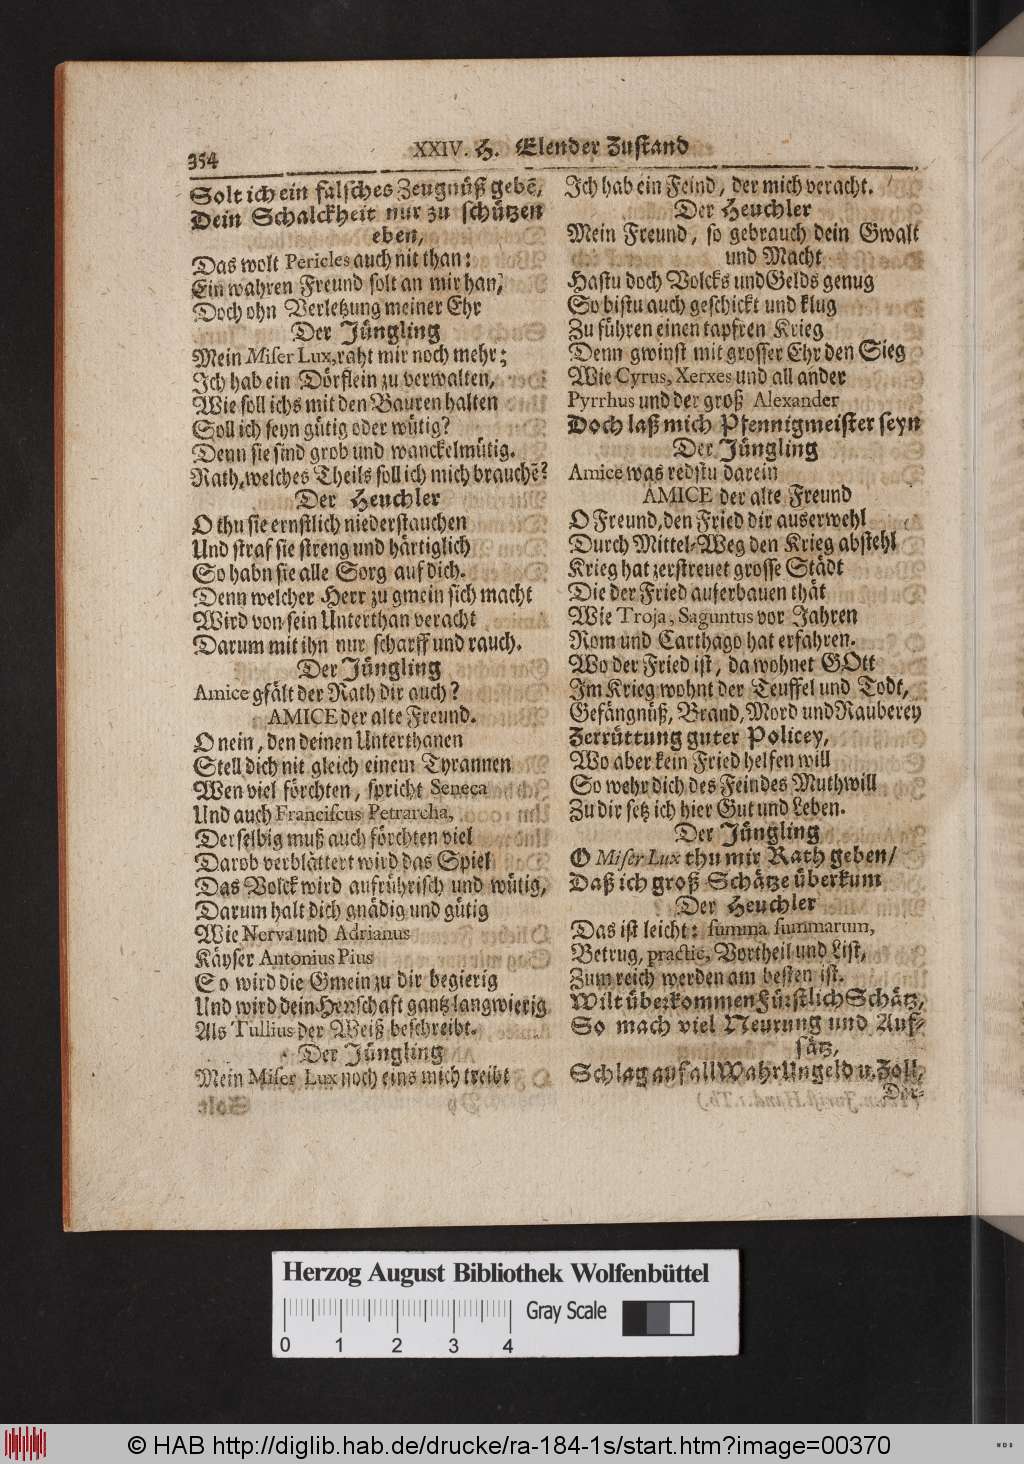 354
XXIV. H. Elender Zustand
Solt ich ein falsches Zeugnüß gebẽ,
Dein Schalckheit nur zu schützen
eben,
Das wolt Pericles auch nit than:
Ein wahren Freund solt an mir han,
Doch ohn Verletzung meiner Ehr
Der Jüngling
Mein Miser Lux, raht mir noch mehr;
Ich hab ein Dörflein zu verwalten,
Wie soll ichs mit den Bauren halten
Soll ich seyn gütig oder wütig?
Denn sie sind grob und wanckelmütig.
Rath, welches Theils soll ich mich brauchẽ?
Der Heuchler
O thu sie ernstlich niederstauchen
Und straf sie streng und härtiglich
So habn sie alle Sorg auf dich.
Denn welcher Herr zu gmein sich macht
Wird von sein Unterthan veracht
Darum mit ihn nur scharff und rauch.
Der Jüngling
Amice gfält der Rath dir auch?
AMICE der alte Freund.
O nein, den deinen Unterthanen
Stell dich nit gleich einem Tyrannen
Wen viel förchten, spricht Seneca
Und auch Franciscus Petrarcha,
Derselbig muß auch förchten viel
Darob verblättert wird das Spiel
Das Volck wird aufrührisch und wütig,
Darum halt dich gnädig und gütig
Wie Nerva und Adrianus
Käyser Antonius Pius
So wird die Gmein zu dir begierig
Und wird dein Herrschaft gantz langwierig
Als Tullius der Weiß beschreibt.
Der Jüngling
Mein Miser Lux noch eins mich treibt
Ich hab ein Feind, der mich veracht.
Der Heuchler
Mein Freund, so gebrauch dein Gwalt
und Macht
Hastu doch Volcks und Gelds genug
So bistu auch geschickt und klug
Zu führen einen tapfren Krieg
Denn gwinst mit grosser Ehr den Sieg
Wie Cyrus, Xerxes und all ander
Pyrrhus und der groß Alexander
Doch laß mich Pfennigmeister seyn
Der Jüngling
Amice was redstu darein
AMICE der alte Freund
O Freund, den Fried dir auserwehl
Durch Mittel-Weg den Krieg abstehl
Krieg hat zerstreuet grosse Städt
Die der Fried auferbauen thät
Wie Troja, Saguntus vor Jahren
Rom und Carthago hat erfahren.
Wo der Fried ist, da wohnet GOtt
Im Krieg wohnt der Teuffel und Todt,
Gefängnüß, Brand, Mord und Rauberey
Zerrüttung guter Policey,
Wo aber kein Fried helfen will
So wehr dich des Feindes Muthwill
Zu dir setz ich hier Gut und Leben.
Der Jüngling
O Miser Lux thu mir Rath geben/
Daß ich groß Schätze überkum
Der Heuchler
Das ist leicht: summa summarum,
Betrug, practic, Vortheil und List,
Zum reich werden am besten ist.
Wilt überkommen Fürstlich Schätz,
So mach viel Neurung und Auf-
sätz,
Schlag auf all Wahr Ungeld u. Zoll,
Dar-
Herzog August Bibliothek Wolfenbüttel
0 1 2 3 4
Gray Scale
© HAB http://diglib.hab.de/drucke/ra-184-1s/start.htm?image=00370